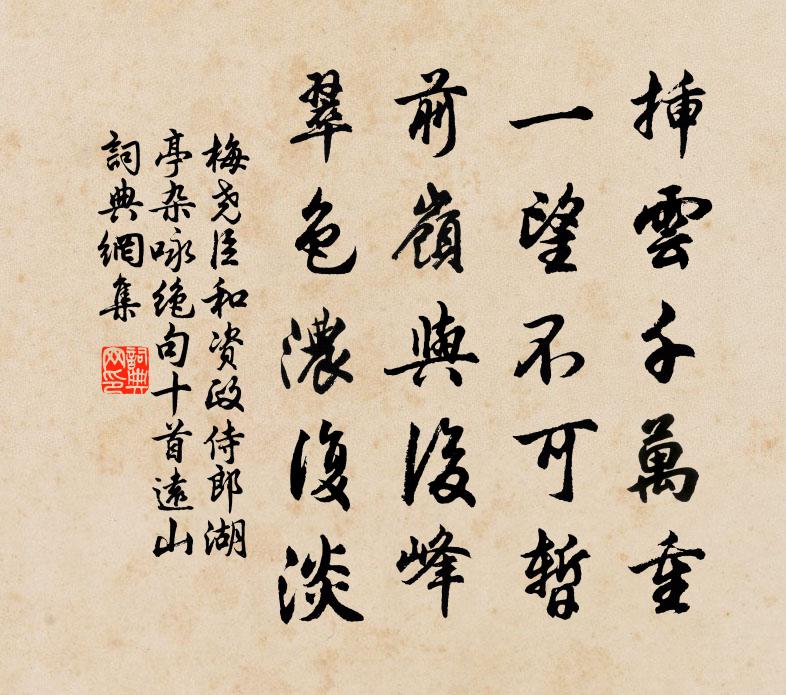 挿雲千萬重
一望不可暫
前嶺與後峰
翠色濃復淡
梅堯臣和資政侍郎湖
亭杂咏绝句十首遠山
詞典網集
詞典網印